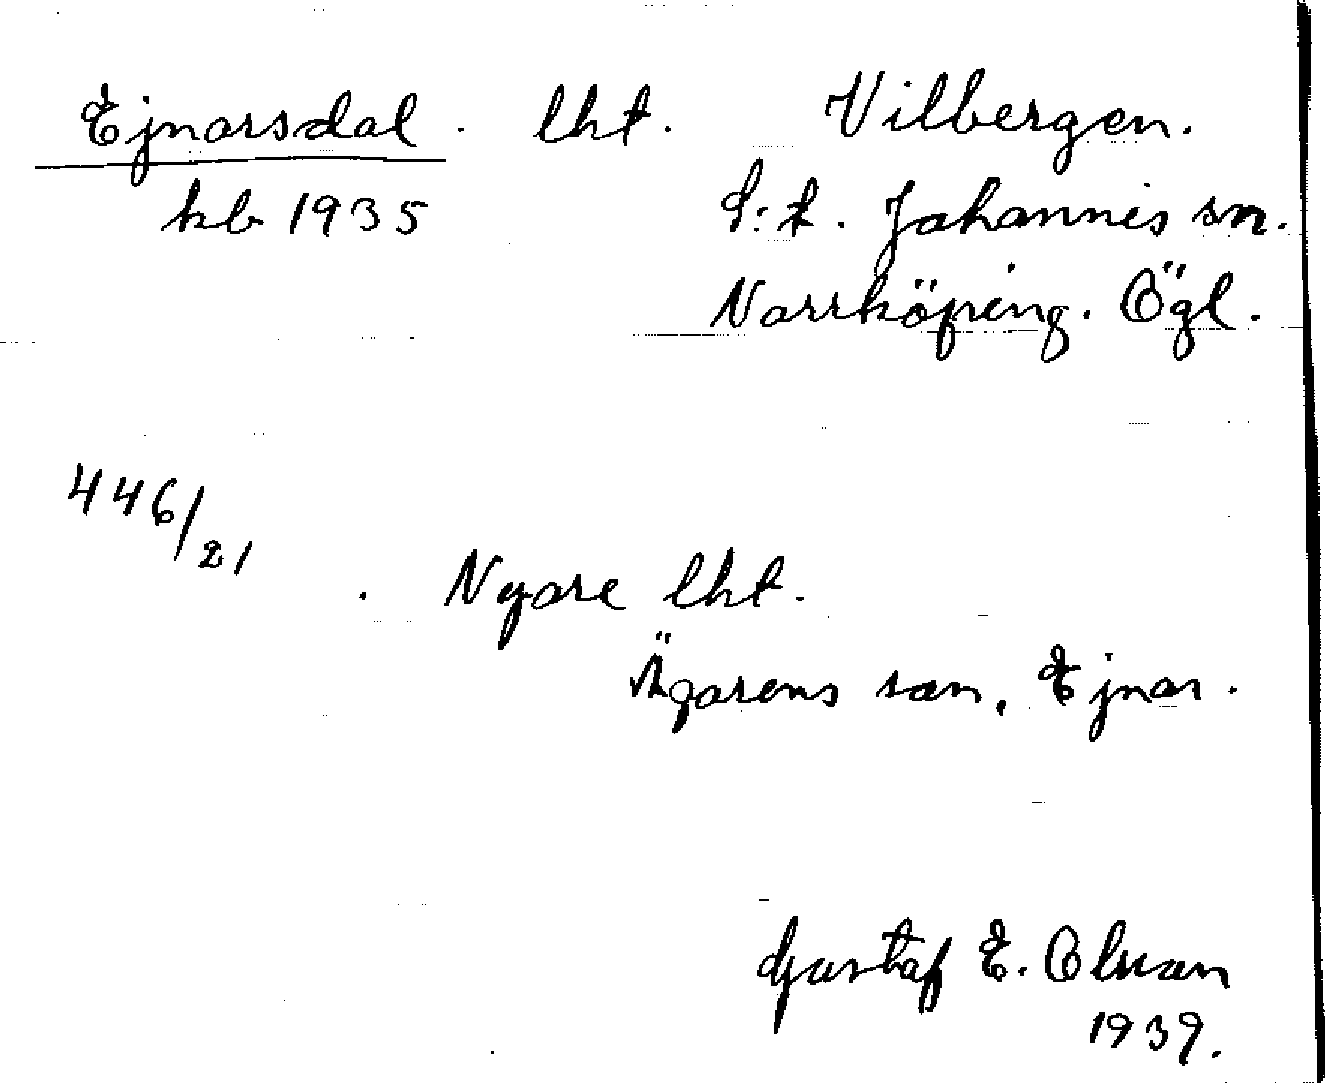 Ejnarsdal. lht. Vilbergen.
kb 1935 S:t. Johannis sn.
Norrköping. Ögl.
446/21
. Nyare lht.
Ägarens son, Ejnar.
Gustaf E. Olsson
1939.